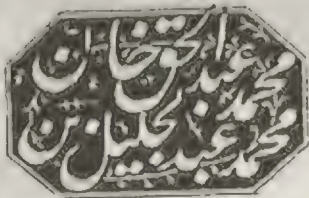 محمد عبد الحق خان
محمد عبد الجليل بن